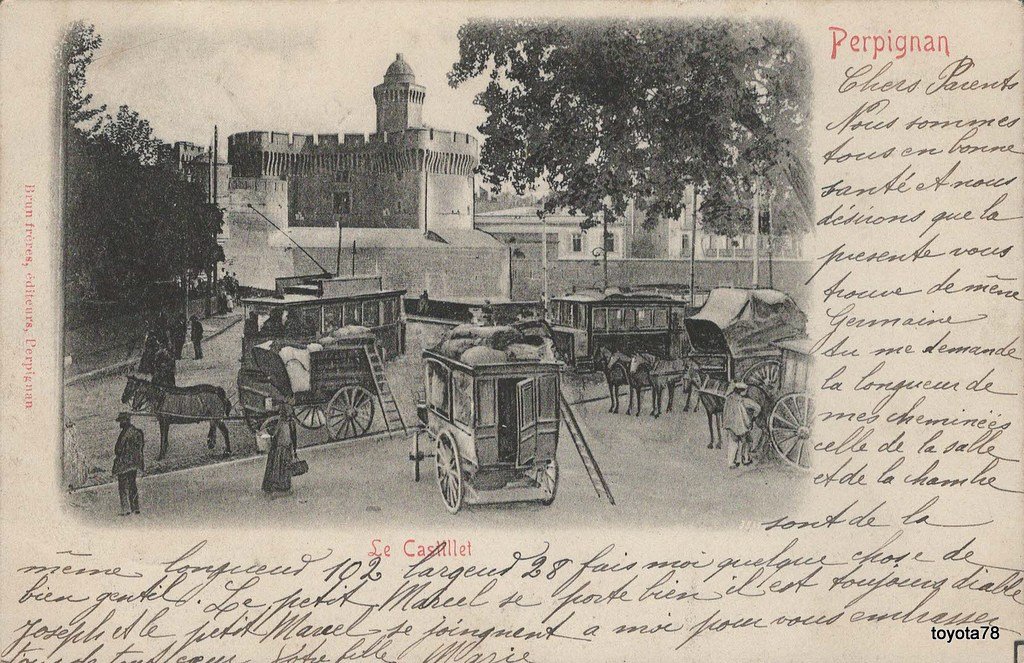 Perpignan
Chers Parents
Nous sommes
tous en bonne
santé et nous
désirons que la
presente vous
trouve de même
Germaine
tu me demande
la longueur de
mes cheminées
celle de la salle
et de la chambre
sont de la
Brun frères, éditeurs, Perpignan
Le Castillet
même longueud 102 largeud 28 fais moi quelque chose de
bien gentil. Le petit Marcel se porte bien il est toujours diable
Joseph et le petit Marcel se joingnent a moi pour vous embrasser
tous de tout cœur Votre fille Marie
toyota78